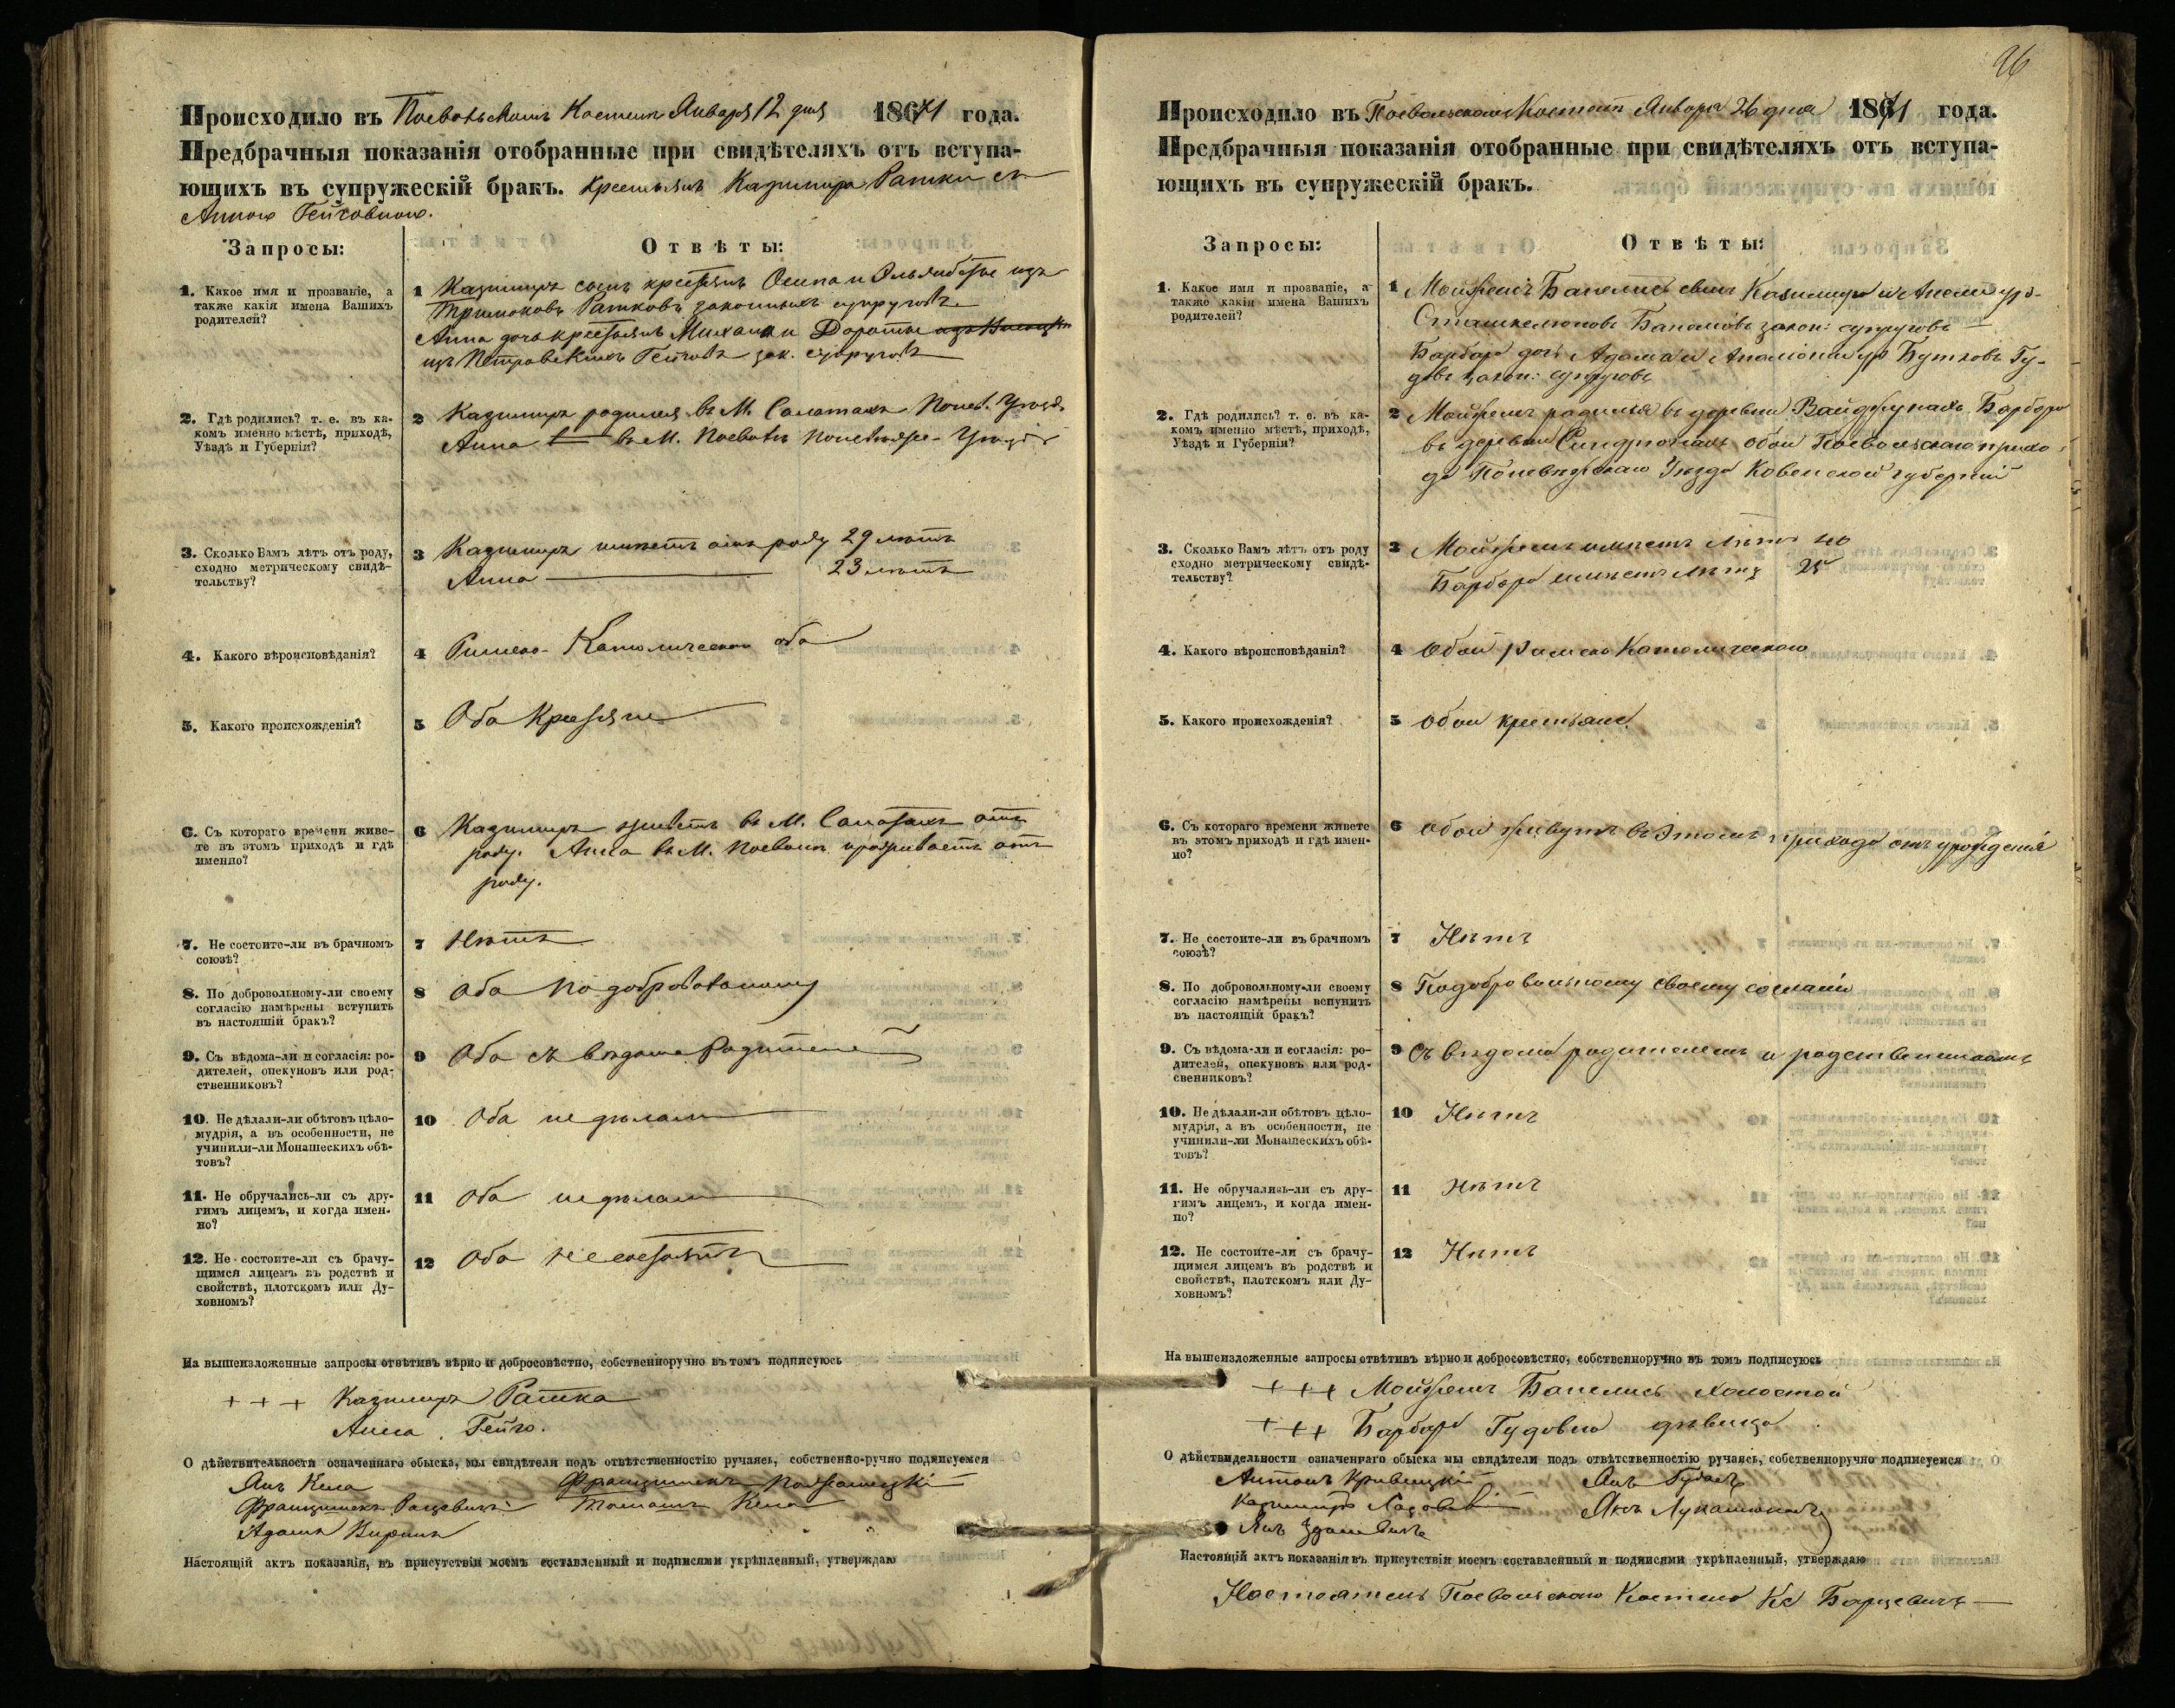 Происходило въ Поевольскомъ Костелѣ Января 12 дня 1871 года.
Предбрачныя показанія отобранные при свидѣтеляхъ отъ вступа-
ющихъ въ супружескій бракъ. Крестьянъ Казимира Ратки съ
Анною Гейговною.
Запросы: Отвѣты:
1. Какое имя и прозваніе, а
также какія имена Вашихъ
родителей?
1 Казимиръ сынъ крестьянъ Осипа и Эльжбеты изъ
Ратковъ законныхъ супруговъ
Анна дочь крестьянъ Михаила и Дороты
изъ Петровскихъ Гейговъ зак. супруговъ
2. Гдѣ родились? т. е. въ ка-
комъ именно мѣстѣ, приходѣ,
Уѣздѣ и Губерніи?
2 Казимиръ родился въ М. Салатахъ Понев. Уѣзд.
Анна въ М. Поеволѣ Поневѣже- Уѣзда
3. Сколько Вамъ лѣтъ отъ роду,
сходно метрическому свидѣ-
тельству?
3 Казимиръ имѣетъ отъ роду 29 лѣтъ
Анна 23 лѣтъ
4. Какого вѣроисповѣданія?
4 Римско-Католическаго оба
5. Какого происхожденія?
5 Оба Крестьяне
6. Съ котораго времени живе-
те въ этомъ приходѣ и гдѣ
именно?
6 Казимиръ живетъ въ М. Салатахъ отъ
роду. Анна въ М. Поеволѣ проживаетъ отъ
роду.
7. Не состоите-ли въ брачномъ
союзѣ?
7 Нѣтъ
8. По добровольному-ли своему
согласію намѣрены вступить
въ настоящій бракъ?
8 Оба по добровольному
9. Съ вѣдома-ли и согласія: ро-
дителей, опекуновъ или род-
ственниковъ?
9 Оба съ вѣдома Родителей
10. Не дѣлали-ли обѣтовъ цѣло-
мудрія, а въ особенности, не
учинили-ли Монашескихъ обѣ-
товъ?
10 Оба не дѣлали
11. Не обручались-ли съ дру-
гимъ лицемъ, и когда имен-
но?
11 Оба не дѣлали
12. Не состоите-ли съ брачу-
щимся лицемъ въ родствѣ и
свойствѣ, плотскомъ или Ду-
ховномъ?
12 Оба не состоятъ
На вышеизложенные запросы отвѣтивъ вѣрно и добросовѣстно, собственноручно въ томъ подписуюсь
+ + + Казимиръ Ратка
Анна Гейго.
О дѣйствительности означеннаго обыска, мы свидѣтели подъ отвѣтственностію ручаясь, собственно-ручно подписуемся
Янъ Кела Францишекъ
Францишекъ Рацевичъ Томашъ Кела
Адамъ
Настоящій актъ показанія, въ присутствіи моемъ составленный и подписями укрѣпленный, утверждаю
96
Происходило въ Поевольскомъ Костелѣ Января 26 дня 1871 года.
Предбрачныя показанія отобранные при свидѣтеляхъ отъ вступа-
ющихъ въ супружескій бракъ.
Запросы: Отвѣты:
1. Какое имя и прозваніе, а
также какія имена Вашихъ
родителей?
1 Мойжешъ Бапелисъ сынъ Казимира и Анели ур.
закон: супруговъ
Барбара дочь Адама и Аполоніи ур Бутковъ Гу-
довъ закон: супруговъ
2. Гдѣ родились? т. е. въ ка-
комъ именно мѣстѣ, приходѣ,
Уѣздѣ и Губерніи?
2 Мойжешъ родился въ деревни Барбара
въ деревни обои Поевольскаго прихо-
да Поневѣжскаго Уѣзда Ковенской губерніи
3. Сколько Вамъ лѣтъ отъ роду
сходно метрическому свидѣ-
тельству?
3 Мойжешъ имѣетъ лѣтъ
Барбара имѣетъ лѣтъ 25
4. Какого вѣроисповѣданія?
4 Обои Римско Католическаго
5. Какого происхожденія?
5 Обои крестьяне
6. Съ котораго времени живете
въ этомъ приходѣ и гдѣ имен-
но?
6 Обои живутъ въ этомъ приходѣ отъ урожденія
7. Не состоите-ли въ брачномъ
союзѣ?
7 Нѣтъ
8. По добровольному-ли своему
согласію намѣрены вспупить
въ настоящій бракъ?
8 По добровольному своему согласію
9. Съ вѣдома-ли и согласія: ро-
дителей, опекуновъ или род-
свенниковъ?
9 Съ вѣдома родителемъ и родственниковъ
10. Не дѣлали-ли обѣтовъ цѣло-
мудрія, а въ особенности, не
учинили-ли Монашескихъ обѣ-
товъ?
10 Нѣтъ
11. Не обручались-ли съ дру-
гимъ лицемъ, и когда имен-
но?
11 Нѣтъ
12. Не состоите-ли съ брачу-
щимся лицемъ въ родствѣ и
свойствѣ, плотскомъ или Ду-
ховномъ?
12 Нѣтъ
На вышеизложенные запросы отвѣтивъ вѣрно и добросовѣстно, собственноручно въ томъ подписуюсь
+ + + Мойжешъ Бапелисъ холостой
+ + + Барбара Гудовна дѣвица
О дѣйствидельности означеннаго обыска мы свидѣтели подъ отвѣтственностію ручаясь, собственноручно подписуемся
Антонъ Кривицкій Янъ
Казимиръ Янъ Лукашюнасъ
Янъ Здановичъ
Настоящій актъ показанія въ присутствіи моемъ составленный и подписями укрѣпленный, утверждаю
Настоятель Поевольскаго Костела Кс Барцевичъ